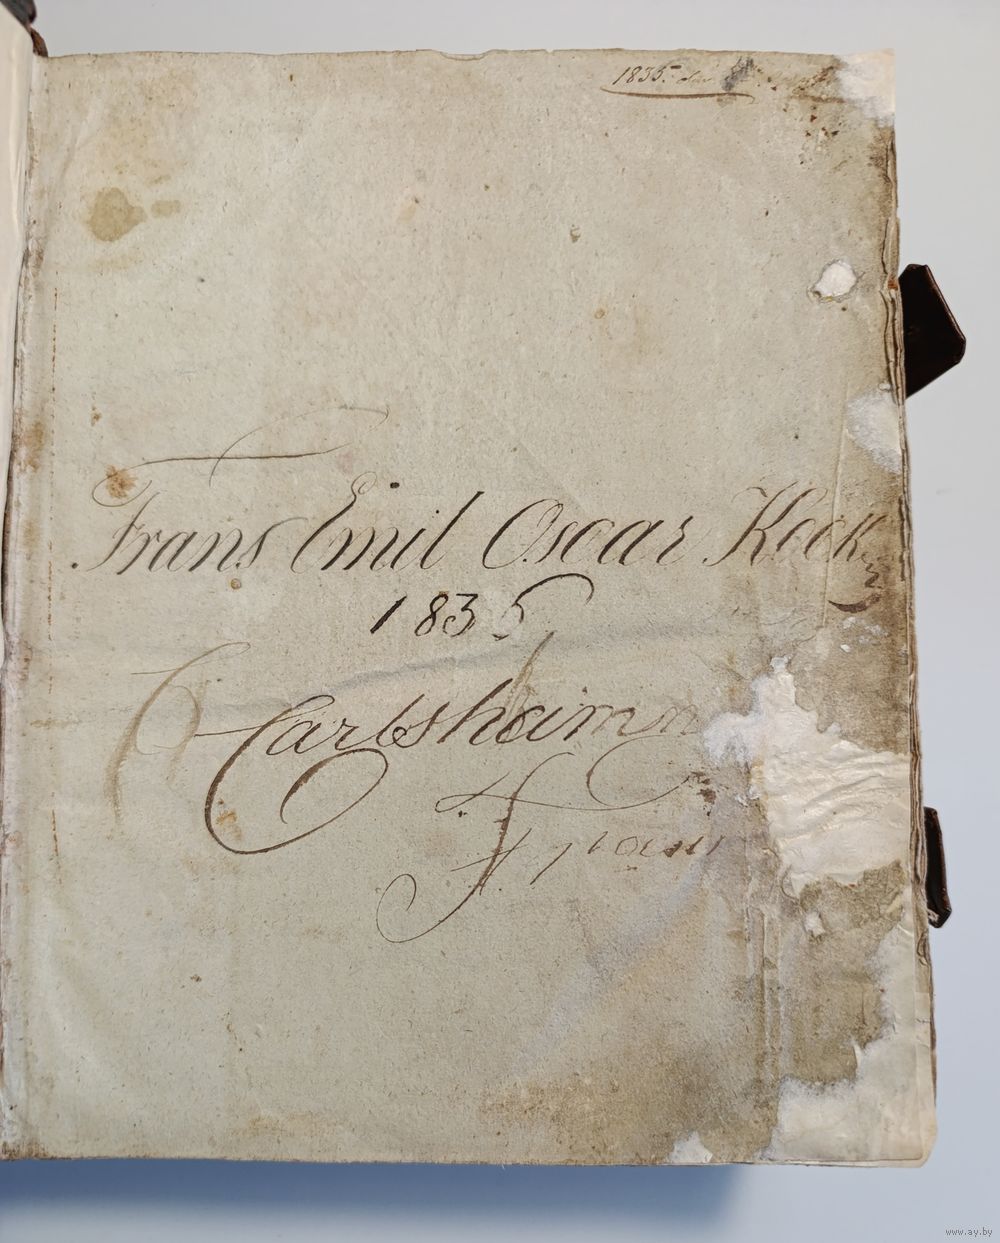 1835. den
Frans Emil Oscar Kock
1835
Carlshamn
www.ay.by